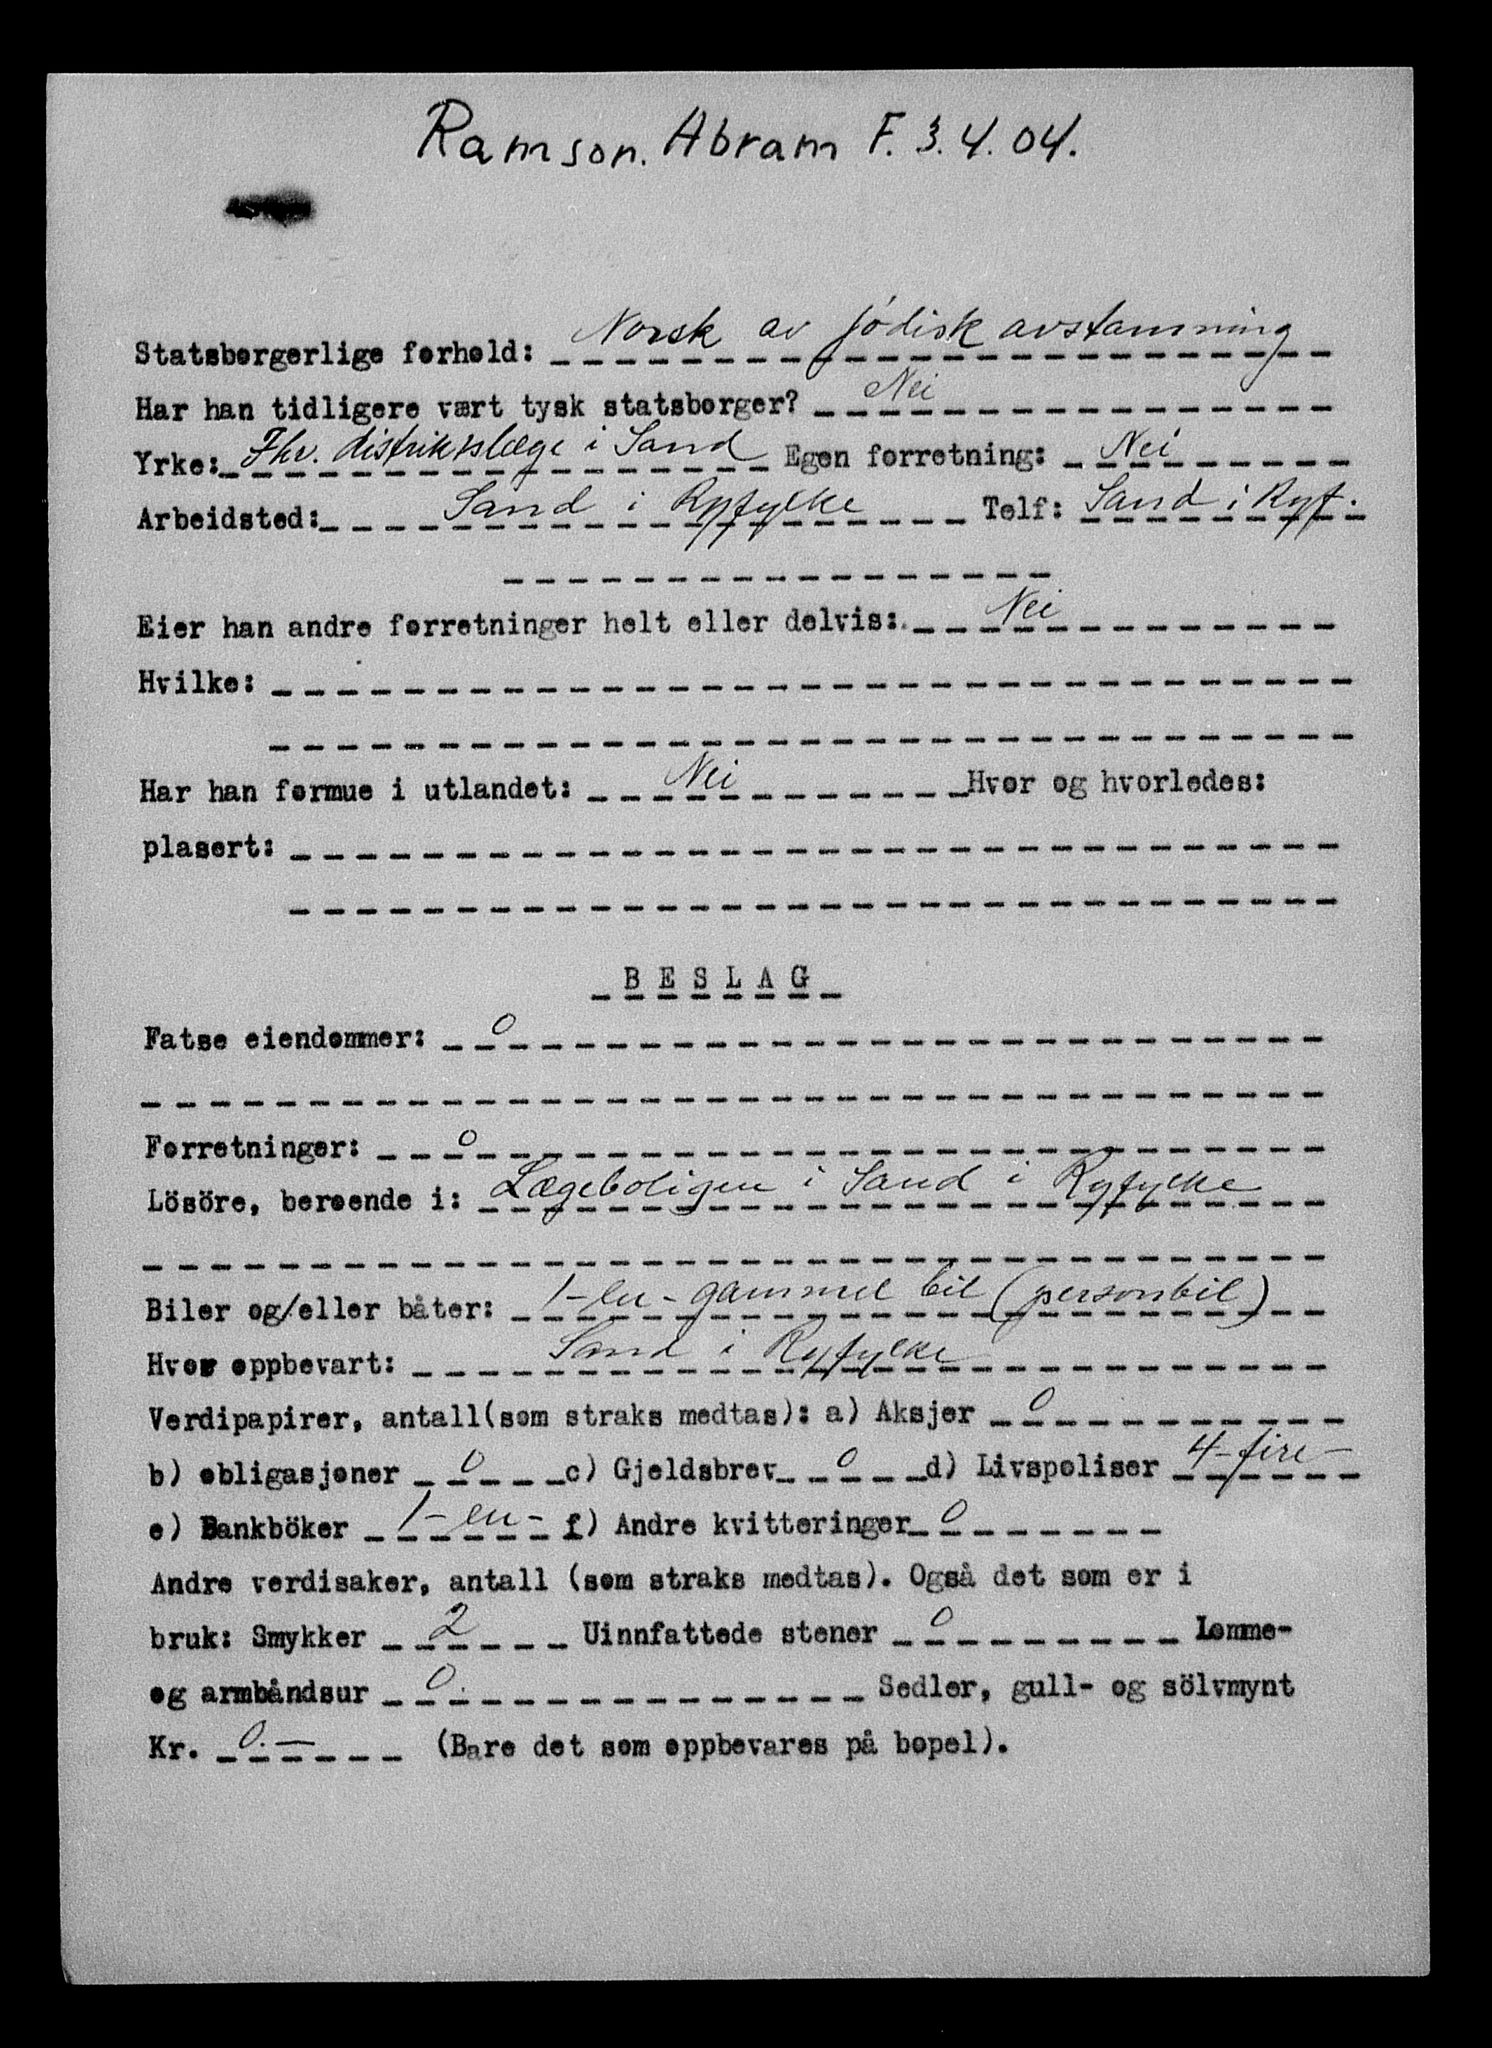 Ramson. Abram F. 3.4.04.
Statsborgerlige forhold: Norsk av jødisk avstamning
Har han tidligere vært tysk statsborger? Nei
Yrke: Fhv. distriktslæge i Sand Egen forretning: Nei
Arbeidsted: Sand i Ryfylke Telf: Sand i Ryf.
Eier han andre forretninger helt eller delvis: Nei
Hvilke:
Har han formue i utlandet: Nei Hvor og hvorledes:
plasert:
BESLAG
Fatse eiendommer: 0
Forretninger: 0
Lösöre, beroende i: Lægeboligen i Sand i Ryfylke
Biler og/eller båter: 1-en-gammel bil (personbil)
Hvor oppbevart: Sand i Ryfylke
Verdipapirer, antall(som straks medtas): a) Aksjer 0
b) obligasjoner 0 c) Gjeldsbrev 0 d) Livspoliser 4-fire-
e) Bankböker 1-en- f) Andre kvitteringer 0
Andre verdisaker, antall (som straks medtas). Også det som er i
bruk: Smykker 2 Uinnfattede stener 0 Lomme-
og armbåndsur 0. Sedler, gull- og sölvmynt
Kr. 0.— (Bare det som oppbevares på bopel).